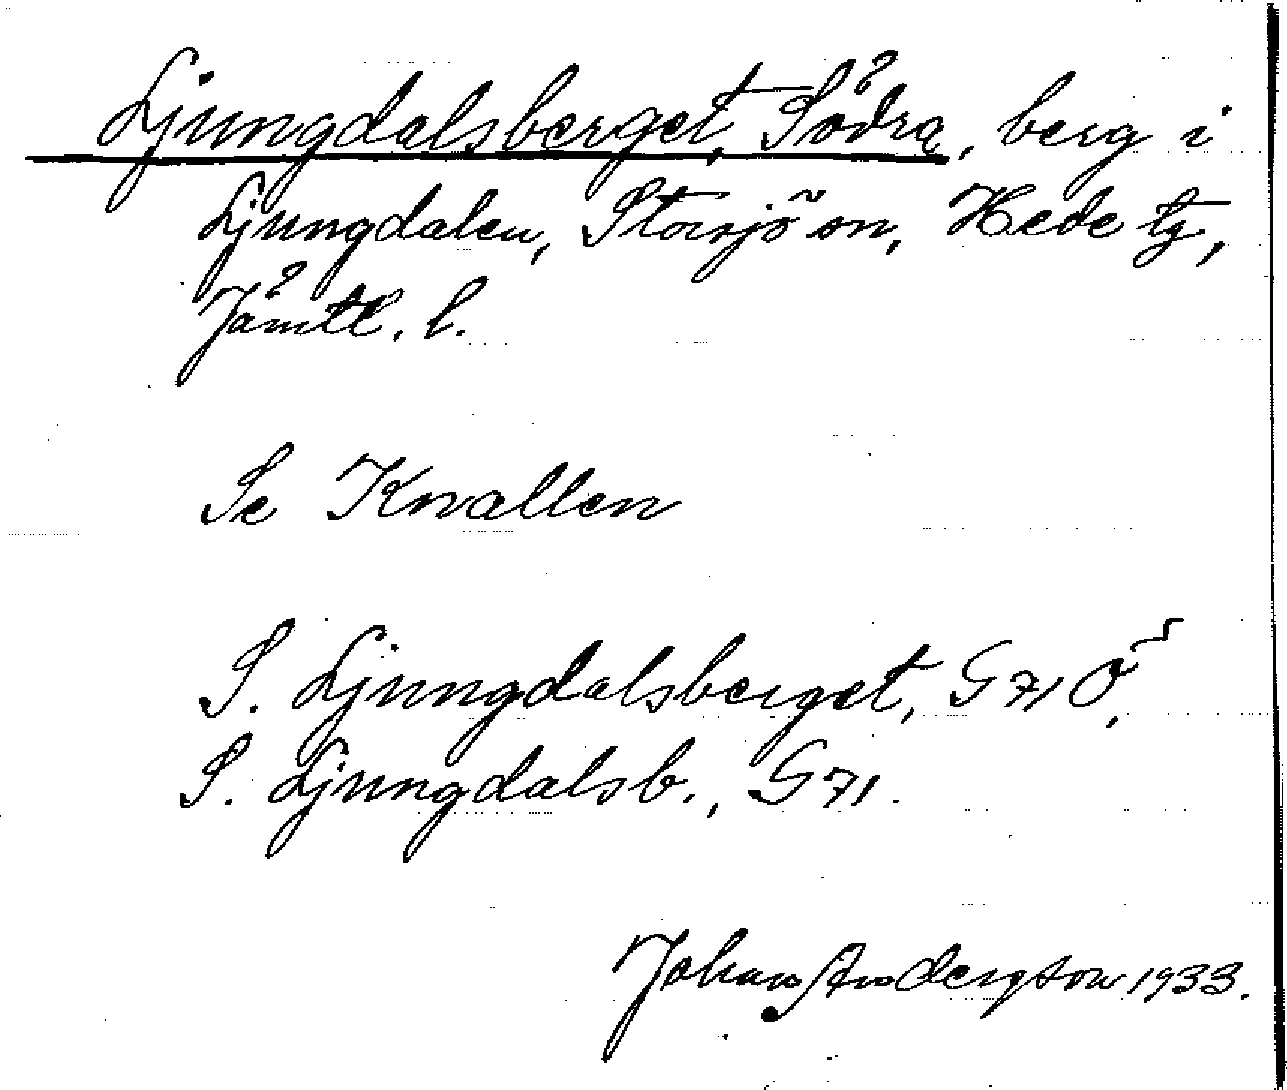 Ljungdalsberget, Södra, berg i
Ljungdalen, Storsjö sn, Hede tg,
Jämtl. l.
Se Knallen
S. Ljungdalsberget, G 71 Ö,
S. Ljungdalsb., G 71.
Johan Andersson 1933.